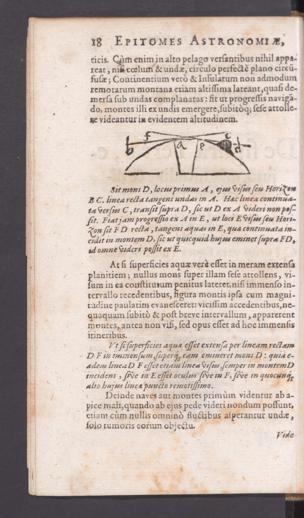 18 EPITOMES ASTRONOMIÆ,
ticis. Cùm enim in alto pelago versantibus nihil appa-
reat, nisi cœlum & undæ, circulo perfectè plano circũ-
fusæ; Continentium verò & Insularum non admodum
remotarum montana etiam altissima lateant, quasi de-
mersa sub undas complanatas: fit ut progressis navigã-
do, montes illi ex undis emergere, subitòq; sese attolle-
re videantur in evidentem altitudinem.
f c
b d
a e
Sit mons D, locus primus A, ejus visûs seu Horizon
B C. linea recta tangens undas in A. Hæc linea continua-
ta versus C, transit supra D, sic ut D ex A videri non pos-
sit. Fiat jam progressio ex A in E, ut loci E visus seu Hori-
zon sit F D recta, tangens aquas in E, quâ continuata in-
cidit in montem D, sic ut quicquid hujus eminet supra F D,
id omne videri possit ex E.
At si superficies aquæ verè esset in meram extensa
planitiem; nullus mons super illam sese attollens, vi-
sum in ea constitutum penitus lateret, nisi immenso in-
tervallo recedentibus, figura montis ipsa cum magni-
tudine paulatim evanesceret: vicissim accedentibus, ne-
quaquam subitò & post breve intervallum, apparerent
montes, antea non visi, sed opus esset ad hoc immensis
itineribus.
Ut si superficies aquæ esset extensa per lineam rectam
D F in immensum, superq́; eam emineret mons D: quia ea-
dem linea D F esset etiam linea visus, semper in montem D
incidens, sive in E esset oculus sive in F, sive in quocunq;
alio hujus lineæ puncto remotissimo.
Deinde naves aut montes primùm videntur ab a-
pice mali, quando ab ejus pede videri nondum possunt,
etiam cùm nullis omninò fluctibus asperantur undæ,
solo tumoris eorum objectu.
Vide